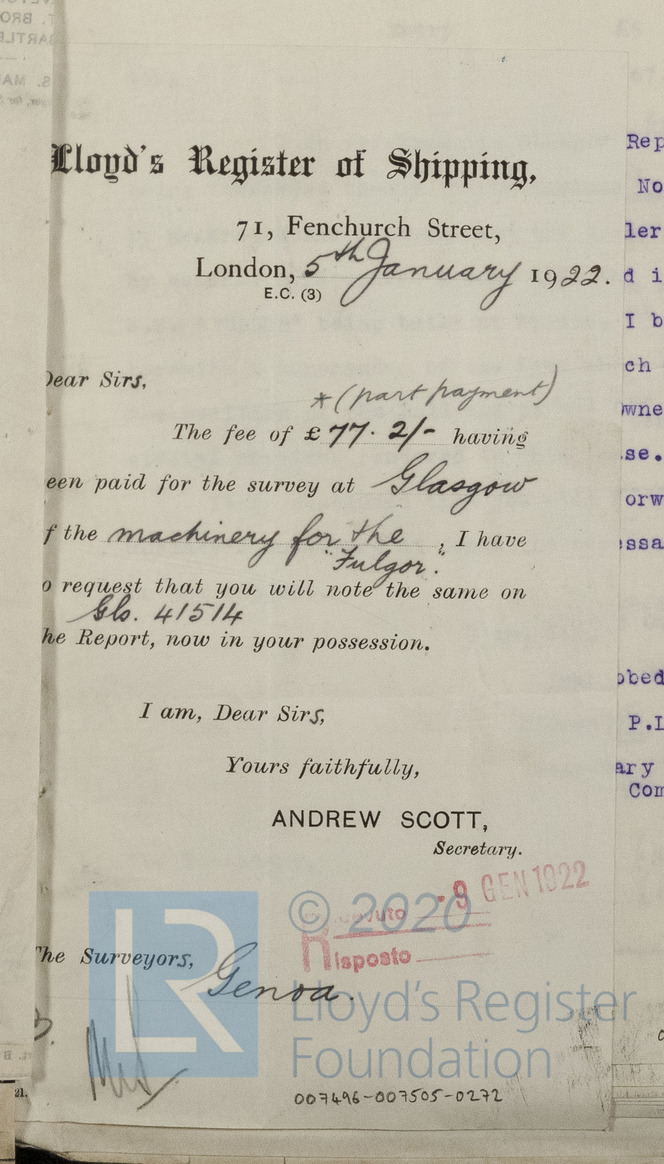 Lloyd's Register of Shipping,
71, Fenchurch Street,
London, 5th January 1922.
E.C. (3)
Dear Sirs,
* (part payment)
The fee of £77. 2/- having
een paid for the survey at Glasgow
f the machinery for the , I have
"Fulgor".
o request that you will note the same on
Gls. 41514
he Report, now in your possession.
I am, Dear Sirs,
Yours faithfully,
ANDREW SCOTT,
Secretary.
- 9 GEN 1922
Risposto
The Surveyors, Genoa.
© 2020
LR
Lloyd's Register
Foundation
007496-007505-0272
21.
Rep
No
ler
d i
I b
ch
wne
se.
orw
ssa
bed
P.L
ary
Com